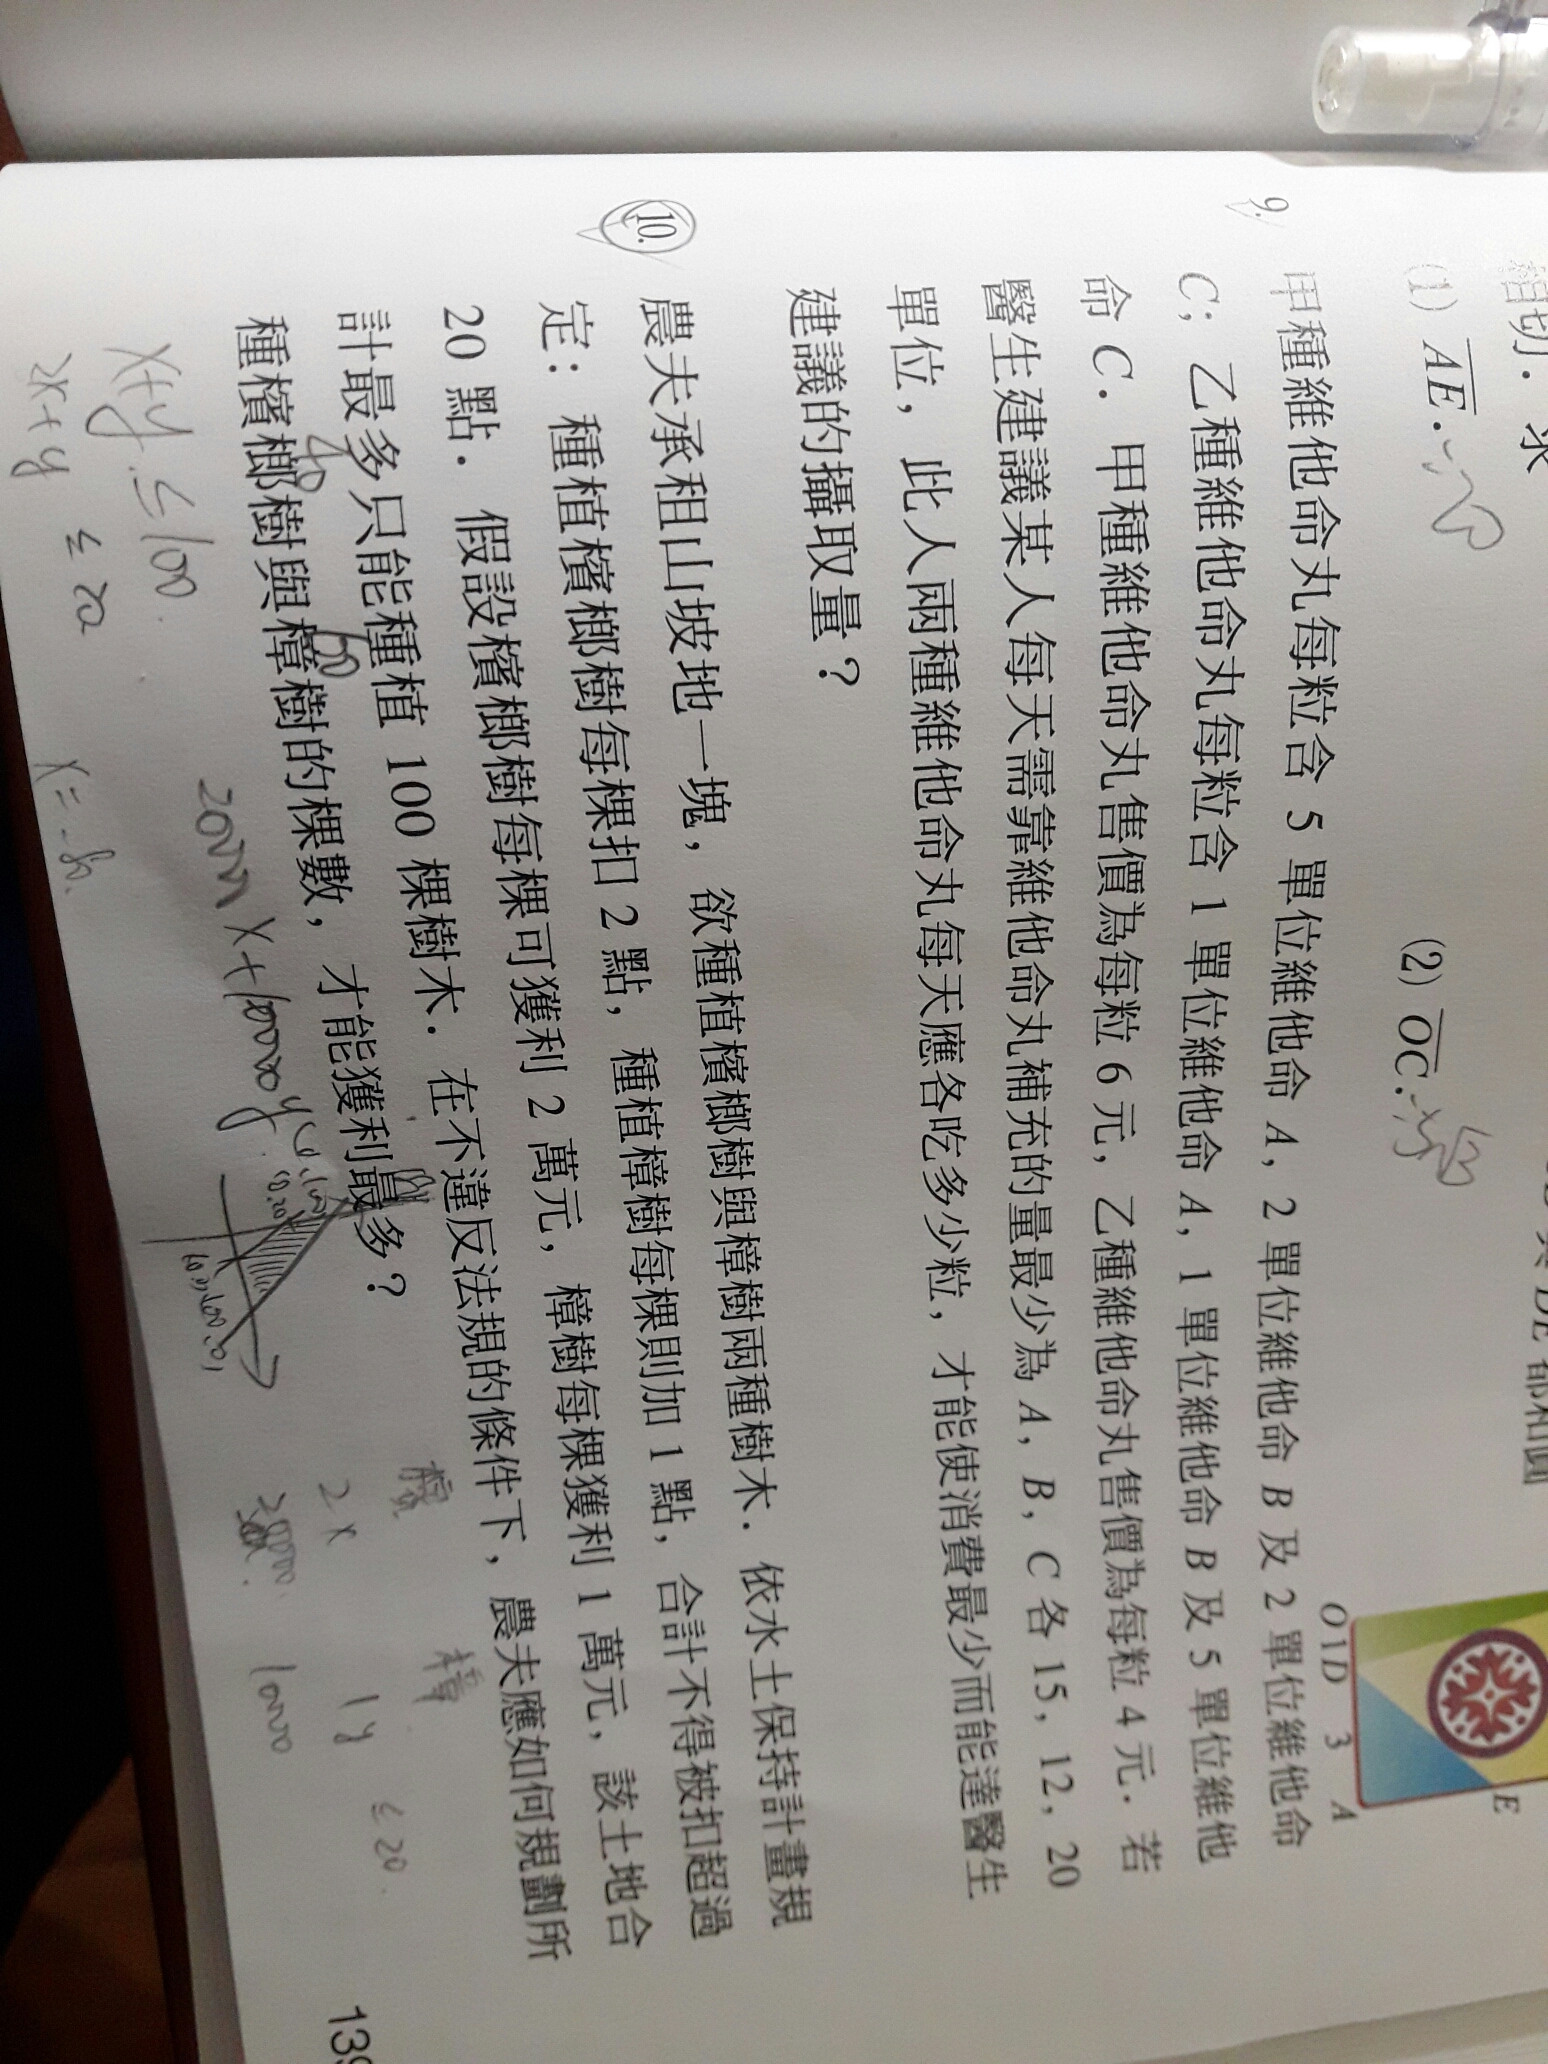 相切．求
(1) AE．
(2) OC．
O 1 D 3 A
E
9. 甲種維他命丸每粒含 5 單位維他命 A，2 單位維他命 B 及 2 單位維他命
C；乙種維他命丸每粒含 1 單位維他命 A，1 單位維他命 B 及 5 單位維他
命 C．甲種維他命丸售價為每粒 6 元，乙種維他命丸售價為每粒 4 元．若
醫生建議某人每天需靠維他命丸補充的量最少為 A，B，C 各 15，12，20
單位，此人兩種維他命丸每天應各吃多少粒，才能使消費最少而能達醫生
建議的攝取量？
10. 農夫承租山坡地一塊，欲種植檳榔樹與樟樹兩種樹木．依水土保持計畫規
定：種植檳榔樹每棵扣 2 點，種植樟樹每棵則加 1 點，合計不得被扣超過
20 點．假設檳榔樹每棵可獲利 2 萬元，樟樹每棵獲利 1 萬元，該土地合
計最多只能種植 100 棵樹木．在不違反法規的條件下，農夫應如何規劃所
種檳榔樹與樟樹的棵數，才能獲利最多？
40
60
x+y ≤ 100
2x+y ≤ 20
樟
2x 1y ≤ 20
10000
139